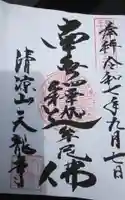 奉拝 令和七年九月七日
南無釋迦牟尼佛
清涼山天龍寺